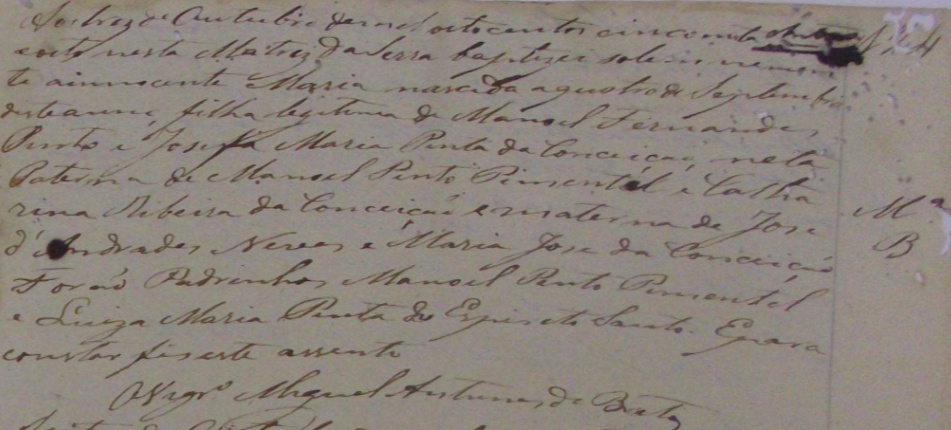 Aos treze de Outubro de mil oitocentos cincoenta
e oito nesta Matriz da Serra baptizei solemnemen
te ainnocente Maria nascida aquatro de Septembro
desteanno, filha legitima de Manoel Fernandes
Pinto e Josefa Maria Pinta da Conceição, neta
Paterna de Manoel Pinto Pimentel e Catha
rina Ribeira da Conceição ematerna de Jose
d'Andrades Neves e Maria Jose da Conceição
Forão Padrinhos Manoel Pinto Pimentel
e Luiza Maria Pinta do Espirito Santo. Epara
constar fis este assento
O Vigrº Miguel Antunes de Brito
Mª
B